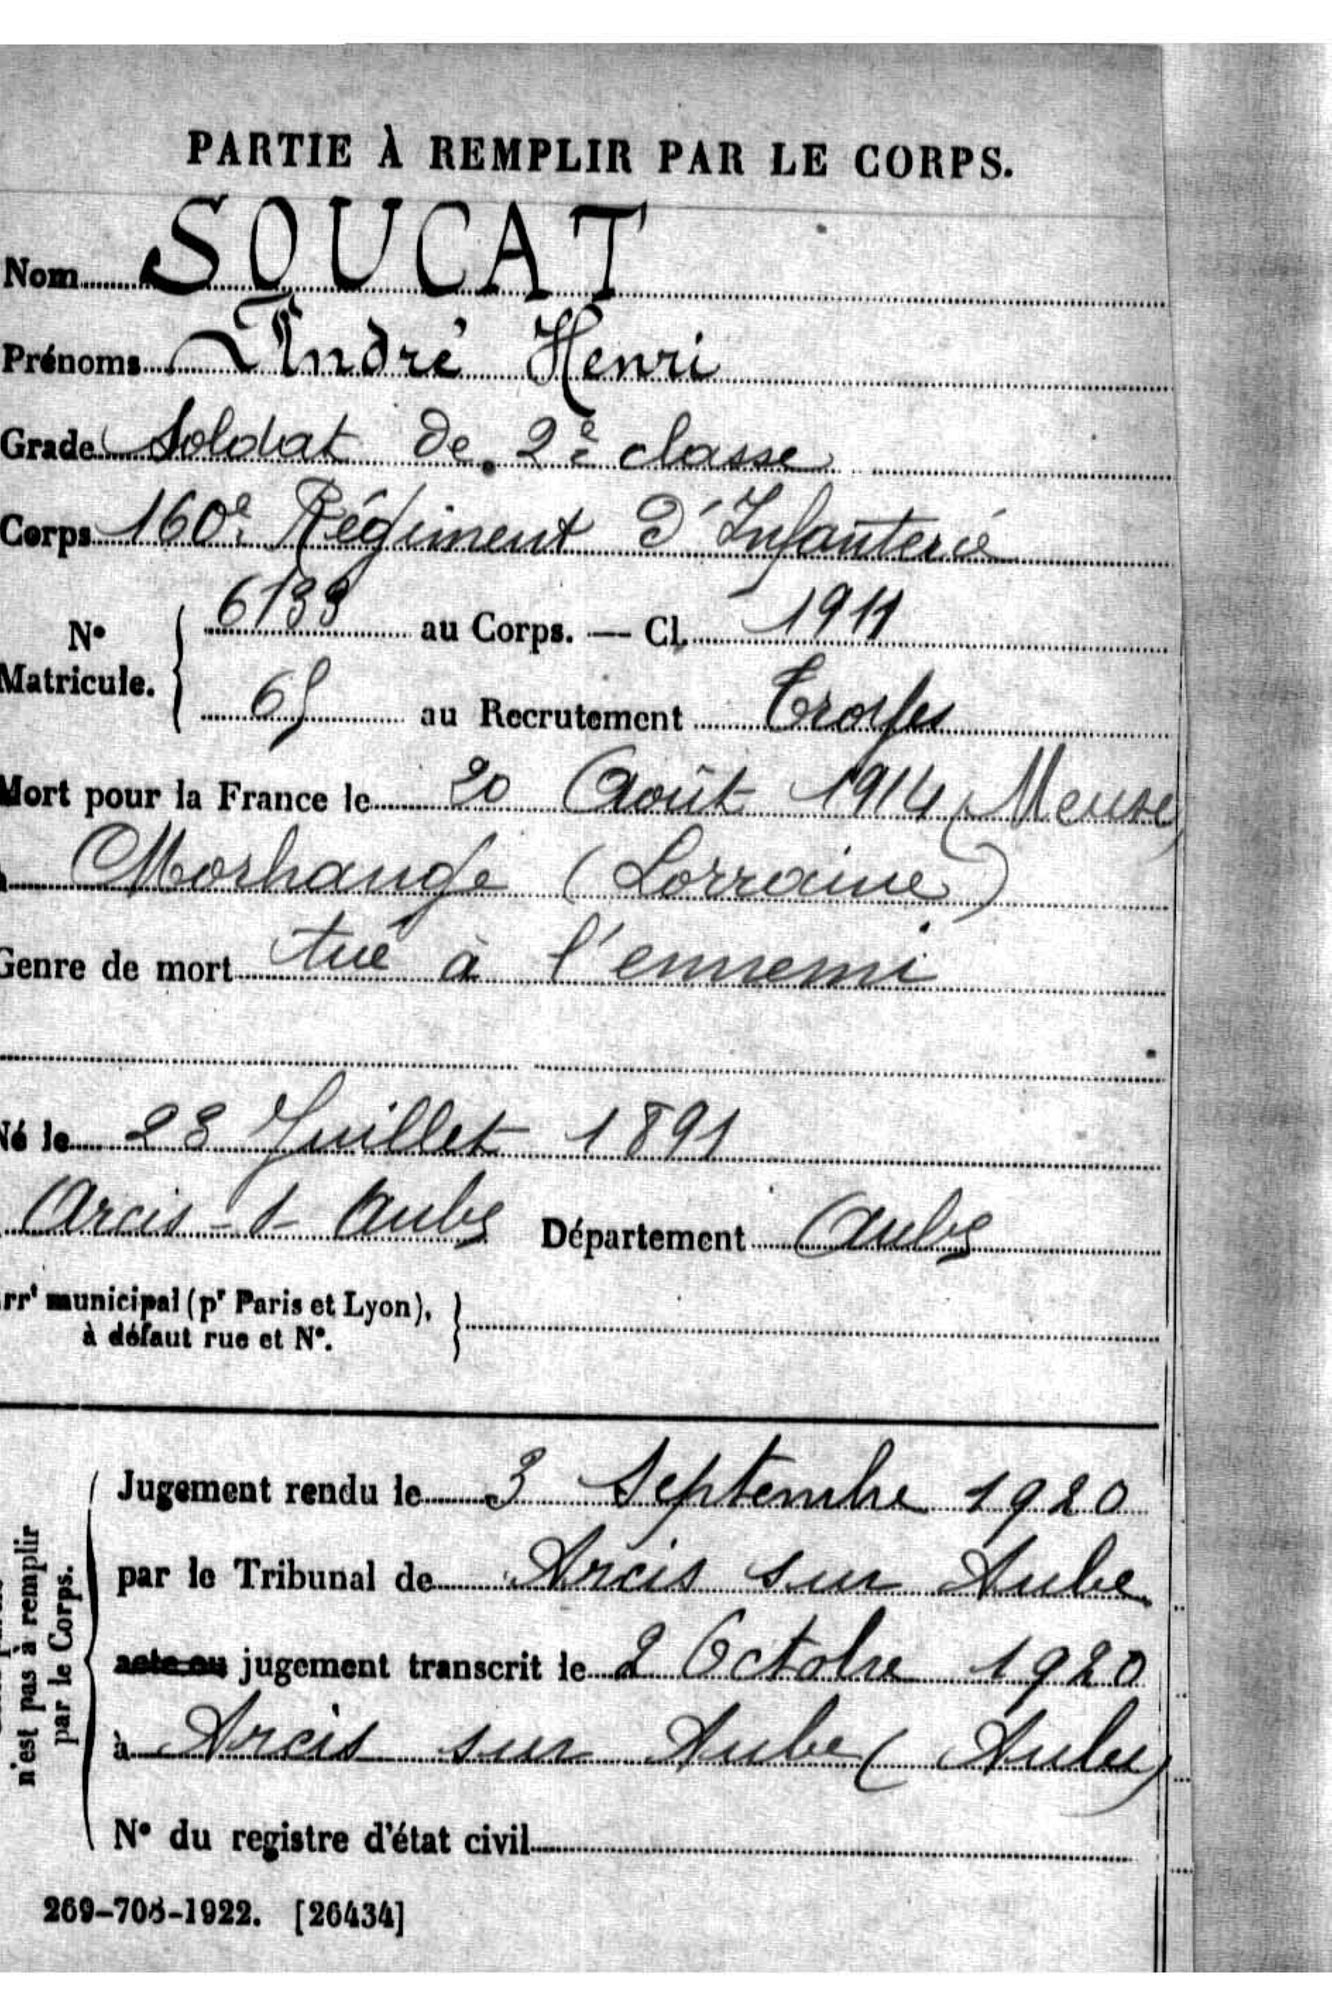 PARTIE À REMPLIR PAR LE CORPS.
Nom SOUCAT
Prénoms André Henri
Grade Soldat de 2e classe
Corps 160e Régiment d'Infanterie
N° Matricule. 6133 au Corps. — Cl. 1911
65 au Recrutement Troyes
Mort pour la France le 20 Août 1914 (Meuse)
Morhange (Lorraine)
Genre de mort tué à l'ennemi
Né le 28 Juillet 1891
Arcis-s-Aube Département Aube
rrt municipal (pr Paris et Lyon),
à défaut rue et N°.
n'est pas à remplir
par le Corps.
Jugement rendu le 3 Septembre 1920
par le Tribunal de Arcis sur Aube
acte ou jugement transcrit le 2 Octobre 1920
à Arcis sur Aube (Aube)
N° du registre d'état civil
269-708-1922. [26434]